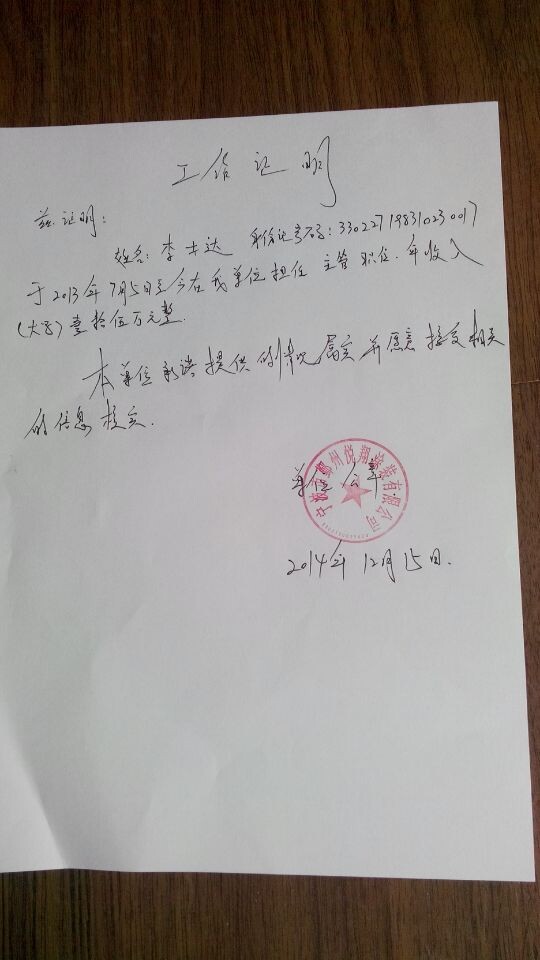 工作证明
兹证明：
姓名：李士达 身份证号码：330227198310230017
于2013年7月5日至今在我单位担任 主管 职位.年收入
(大写)壹拾伍万元整.
本单位承诺提供的情况属实并愿意接受相关
的信息核实.
单位公章.
宁波市鄞州悦翔检装有限公司
2014年12月15日.